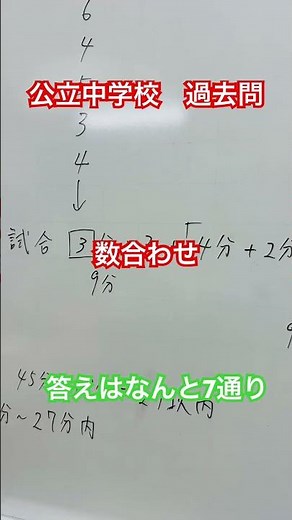 6
4
3
4
↓
公立中学校 過去問
試合 3
数合わせ
4分+2分
9分
45分
答えはなんと7通り
分～27分内
以内